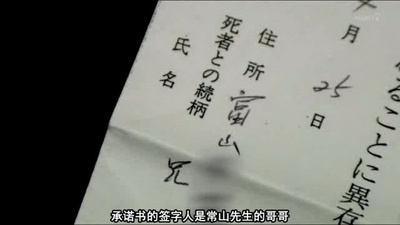 ることに異存
月25日
住所 富山
死者との続柄 兄
氏名
承诺书的签字人是常山先生的哥哥